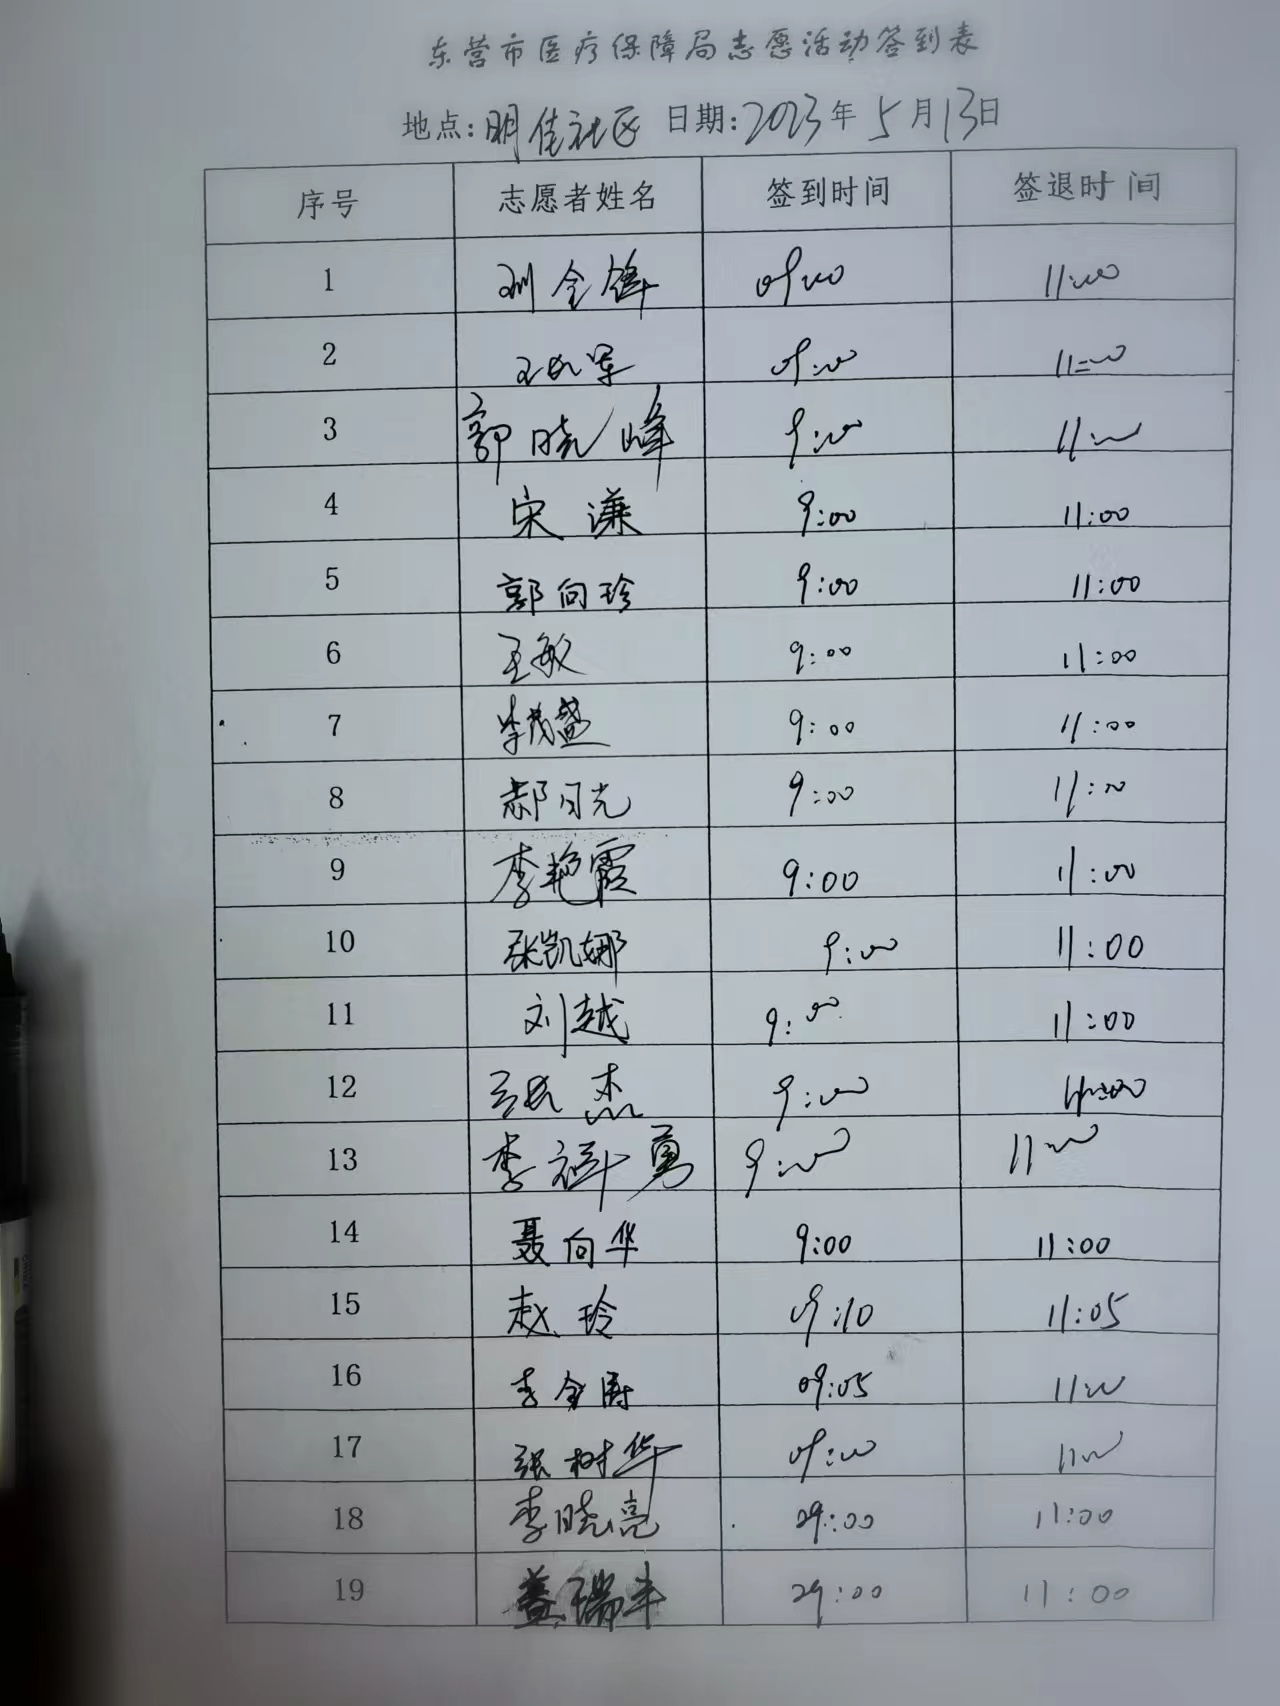 东营市医疗保障局志愿活动签到表
地点:明佳社区 日期:2023年5月13日
序号 志愿者姓名 签到时间 签退时间
1 刘金锋 09:00 11:00
2 09:00 11:00
3 郭晓峰 9:00 11:00
4 宋谦 9:00 11:00
5 郭向珍 9:00 11:00
6 王敏 9:00 11:00
7 李茂盛 9:00 11:00
8 郝月光 9:00 11:00
9 李艳霞 9:00 11:00
10 张凯娜 9:00 11:00
11 刘越 9:00 11:00
12 张杰 9:00 11:00
13 李祥勇 9:00 11:00
14 聂向华 9:00 11:00
15 赵玲 09:10 11:05
16 李金涛 09:05 11:00
17 张树华 09:00 11:00
18 李晓亮 09:00 11:00
19 盖瑞丰 09:00 11:00